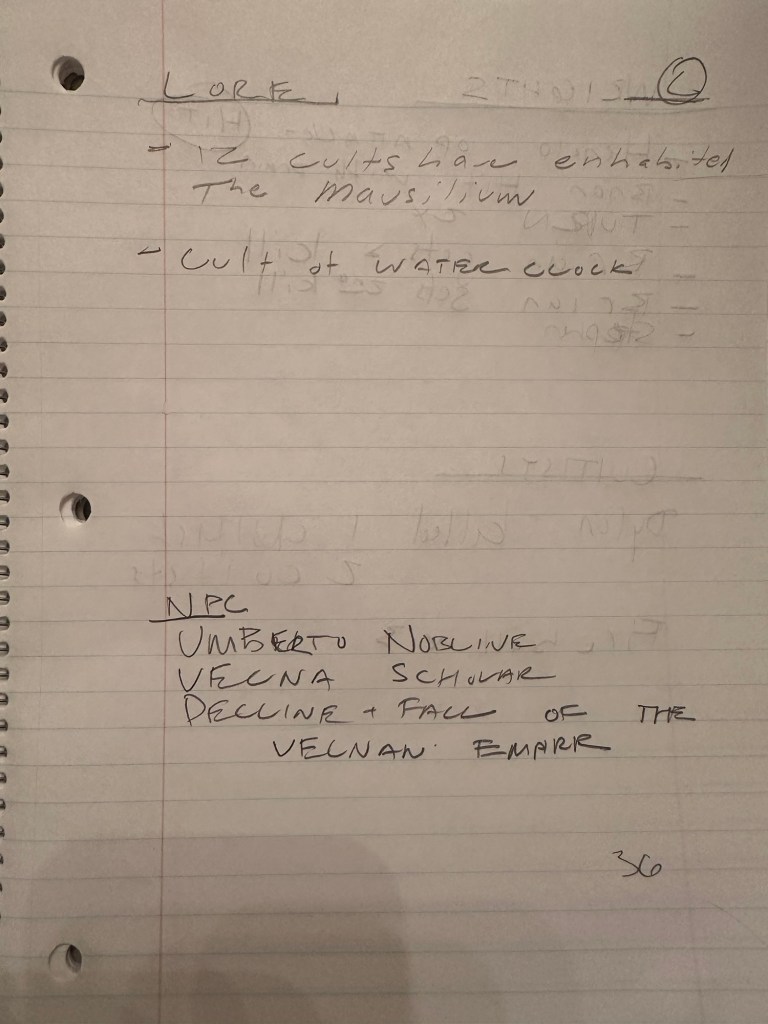 LORE 2
- 12 cults have enhabited
The Mausilium
- Cult of WATER CLOCK
NPC
UMBERTO NOBLINE
VECNA SCHOLAR
DECLINE + FALL OF THE
VECNAN EMPIRE
36